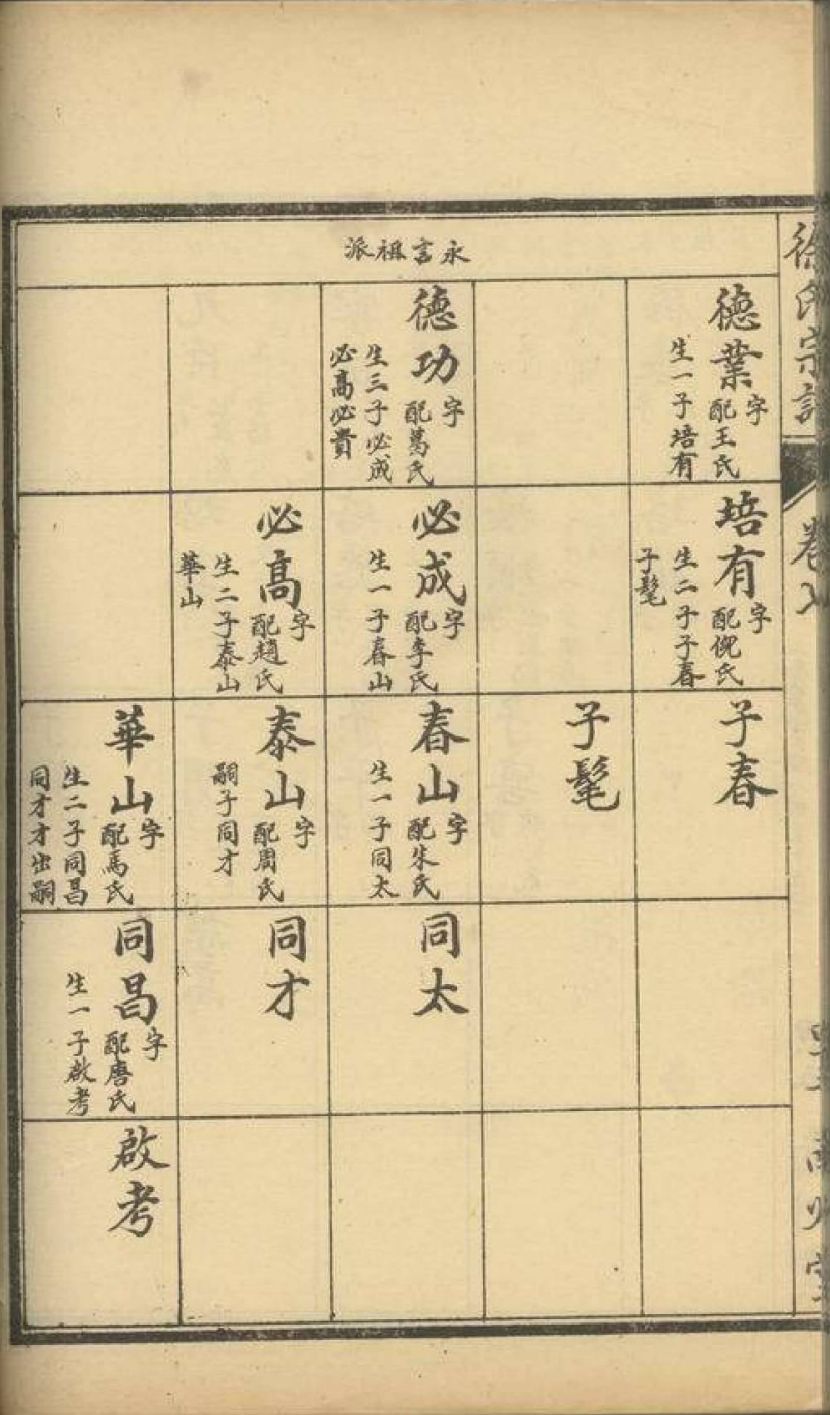 徐氏宗譜
卷七
永言祖派
德業
字
配王氏
生一子培有
德功
字
配葛氏
生三子必成
必高必貴
培有
字
配倪氏
生二子子春
子髦
必成
字
配李氏
生一子春山
必高
字
配趙氏
生二子泰山
華山
子春
子髦
春山
字
配朱氏
生一子同太
泰山
字
配周氏
嗣子同才
華山
字
配馬氏
生二子同昌
同才才出嗣
同太
同才
同昌
字
配唐氏
生一子啟考
啟考